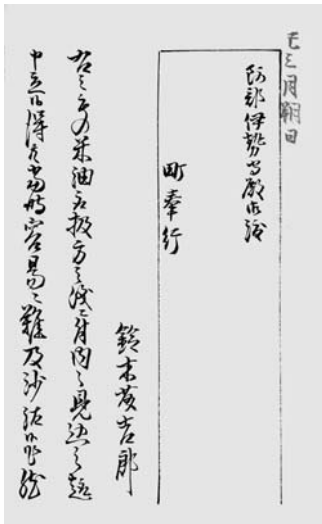 壬三月朔日
阿部伊勢守殿御渡
町奉行
鈴木 吉郎
右之者米油取扱方之儀ニ付内々見込之趣
申立候得共当時容易ニ難及沙汰